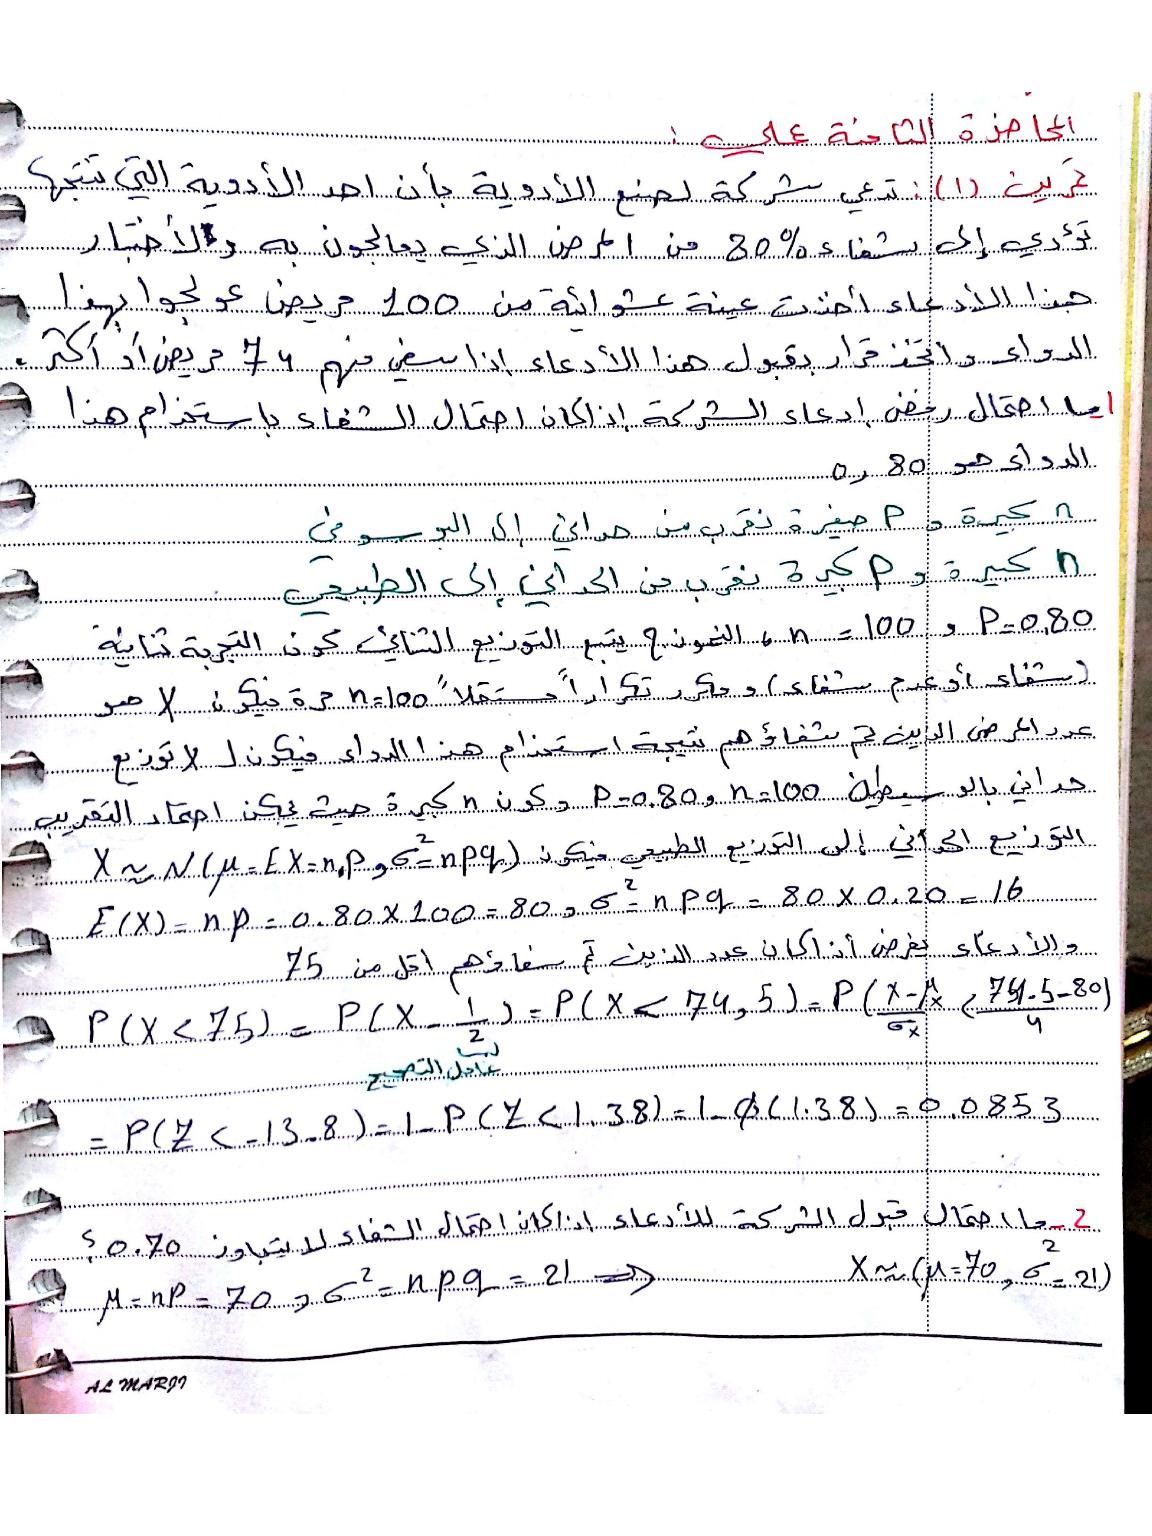 المحاضرة الثامنة عملي :
تمرين (1) : تدعي شركة لصنع الأدوية بأن احد الأدوية التي تنتجها
تؤدي إلى شفاء 80% من المرض الذي يعالجون به ولأختبار
هذا الأدعاء أخذت عينة عشوائية من 100 مريض عولجوا بهذا
الدواء واتخذ قرار بقبول هذا الأدعاء إذا شفي منهم 74 مريض أو أكثر .
1 ما احتمال رفض إدعاء الشركة إذا كان احتمال الشفاء باستخدام هذا
الدواء هو 0,80
n كبيرة و P صغيرة نقرب من حداني إلى البوسوني
n كبيرة و P كبيرة نقرب من الحداني إلى الطبيعي
P=0,80 و n = 100 ، النموذج يتبع التوزيع الثنائي كون التجربة ثنائية
(شفاء أو عدم شفاء) ومكرر تكراراً مستقلاً n=100 مرة فيكون X هو
عدد المرض الذين تم شفاؤهم نتيجة استخدام هذا الدواء فيكون لـ X توزيع
حداني بالوسيطين n=100 و P=0.80 وكون n كبيرة حيث يمكن اعتماد التقريب
التوزيع الحداني إلى التوزيع الطبيعي فيكون X≈N(μ=EX=n.p, σ²=npq)
E(X) = np = 0.80 × 100 = 80 , σ² = npq = 80 × 0.20 = 16
والأدعاء يفرض أذا كان عدد الذين تم شفاؤهم اقل من 75
P(X < 75) = P(X - 1/2) = P(X < 74,5) = P(X-μx/σx < 74.5-80/4)
عامل التصحيح
= P(Z < -13.8) = 1 - P(Z < 1.38) = 1 - φ(1.38) = 0.0853
2- ما احتمال قبول الشركة للأدعاء إذا كان احتمال الشفاء لا يتجاوز 0.70 ؟
μ = np = 70 , σ² = npq = 21 ⇒ X≈(μ=70, σ²=21)
AL MARJI